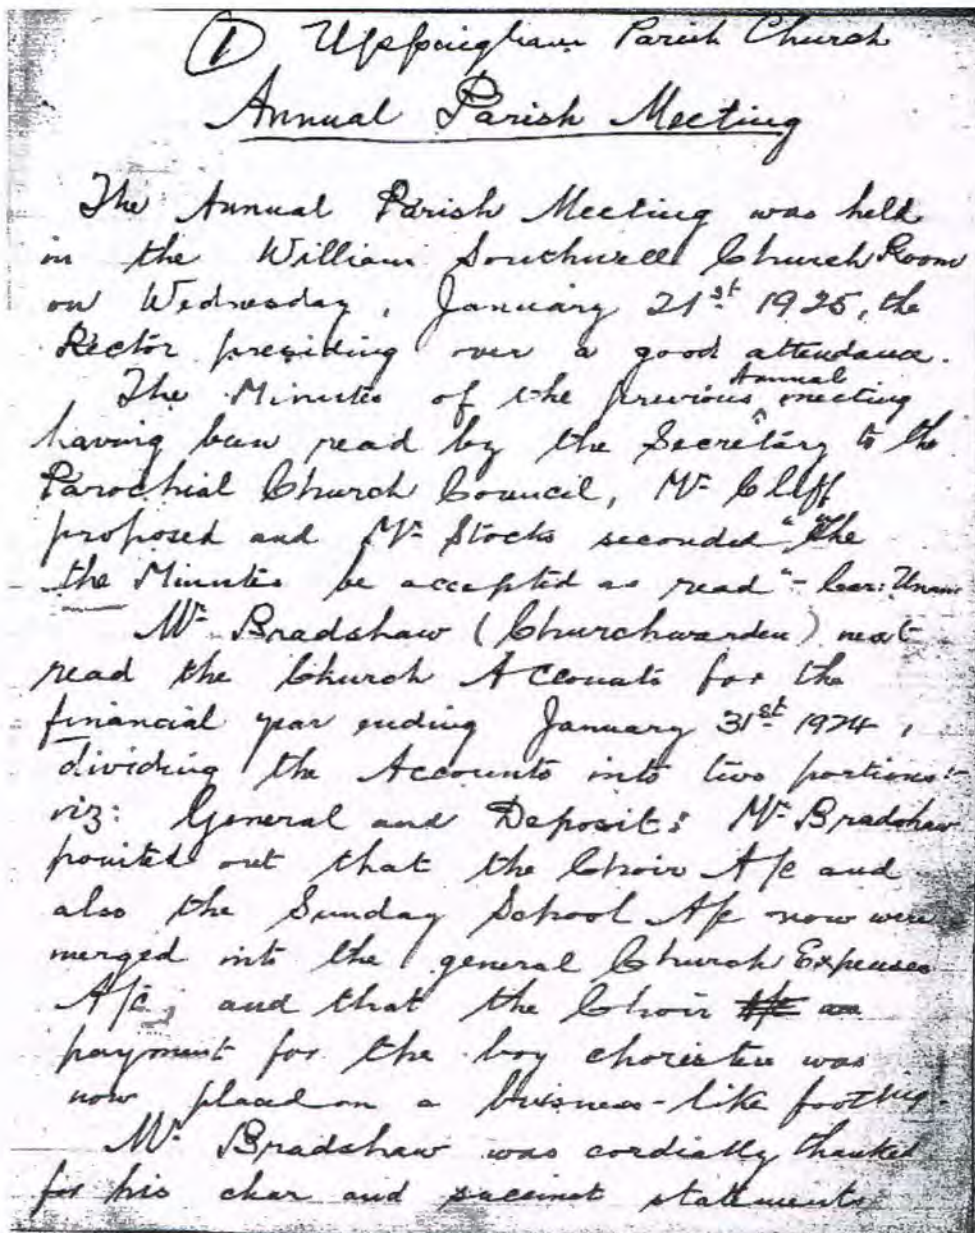 ① Uppingham Parish Church
Annual Parish Meeting
The Annual Parish Meeting was held
in the William Southwell Church Room
on Wednesday, January 21st 1925, the
Rector presiding over a good attendance.
The Minutes of the previous Annual meeting
having been read by the Secretary to the
Parochial Church Council, Mr Cliff
proposed and Mr Stocks seconded "The
the Minutes be accepted as read" - Car: Unan:
Mr Bradshaw (Churchwarden) next
read the Church Accounts for the
financial year ending January 31st 1924,
dividing the Accounts into two portions:-
viz: General and Deposit: Mr Bradshaw
pointed out that the Choir A/c and
also the Sunday School A/c now were
merged into the general Church Expenses
A/c; and that the Choir A/c
payment for the boy choristers was
now placed on a buisness-like footing.
Mr Bradshaw was cordially thanked
for his clear and succinct statements